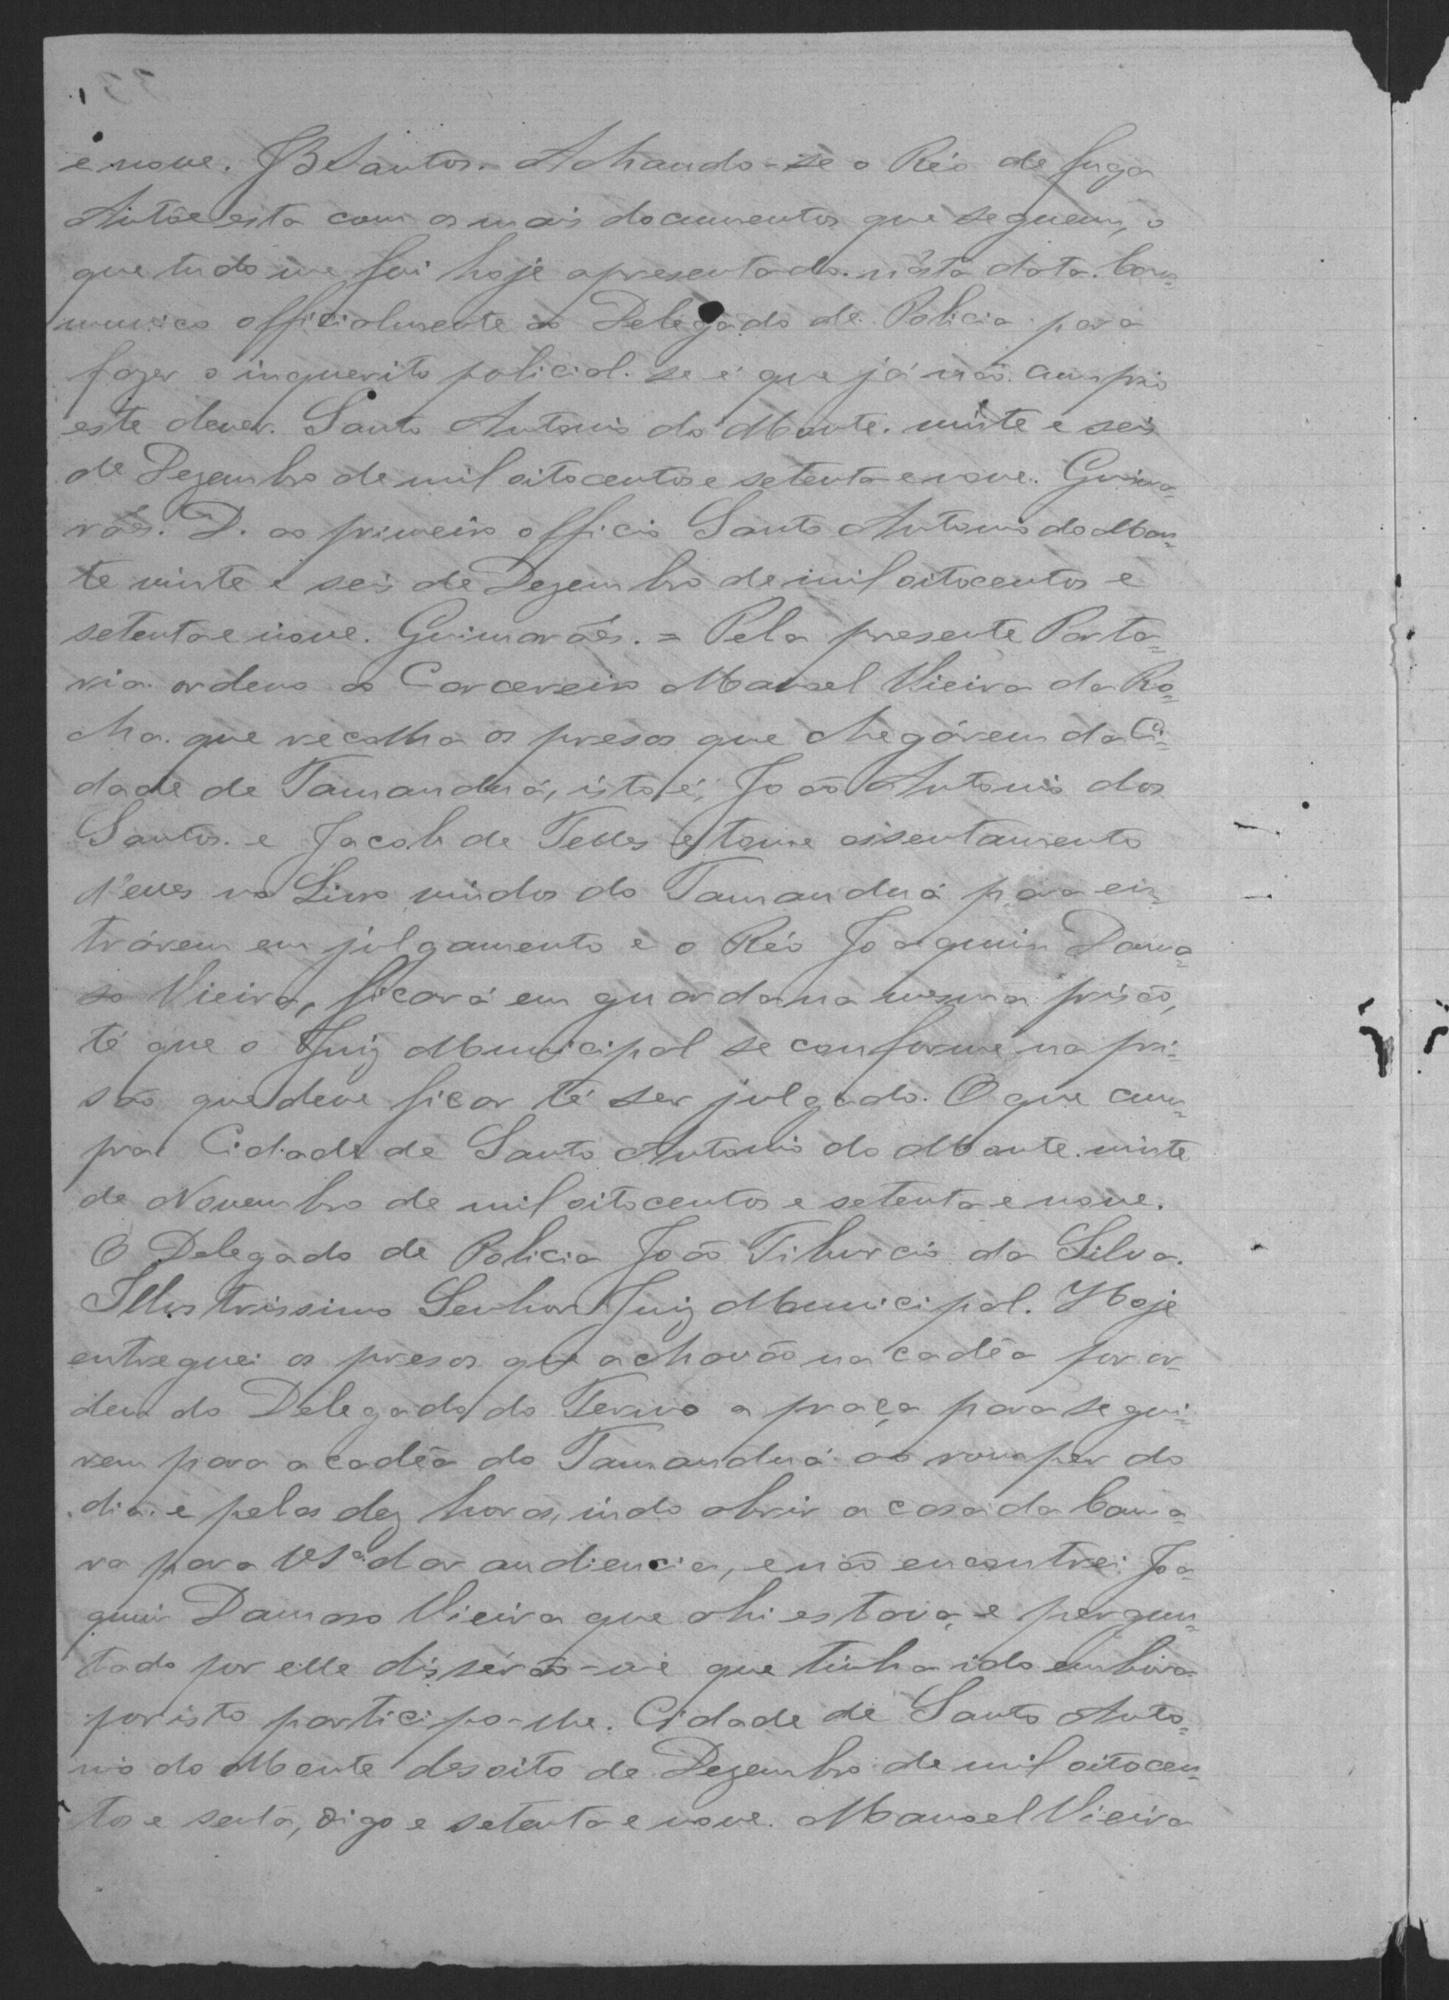 e nove. JBSantos. Achando-se o Réo de fuga
Autôe esta com os mais documentos que seguem, o
que tudo me foi hoje apresentado. nésta data. Com=
munico officialmente ao Delegado de Policia para
fazer o inquerito policial. se é que já não cumprio
este dever. Santo Antonio do Monte. vinte e seis
de Dezembro de mil oitocentos e setenta e nove. Guima=
rães. D. ao primeiro officio Santo Antonio do Mon=
te vinte e seis de Dezembro de mil oitocentos e
setenta e nove. Guimarães. = Pela presente Porta=
ria ordeno ao Carcereiro Manoel Vieira da Ro=
cha. que recolha os presos que chegárem da Ci=
dade de Tamanduá, isto é, João Antonio dos
Santos. e Jacob de Telles e tome assentamento
d'elles no Livro vindos do Tamanduá para en=
trárem em julgamento e o Réo Joaquim Dama=
so Vieira, ficará em guarda na mesma prisão,
té que o Juiz Municipal se conforme na pri=
são que deve ficar té ser julgado. O que cum=
pra Cidade de Santo Antonio do Monte. vinte
de Novembro de mil oitocentos e setenta e nove.
O Delegado de Policia João Tiburcio da Silva.
Illustrissimo Senhor Juiz Municipal. Hoje
entreguei os presos que achavão na cadêa por or=
dem do Delegado do Termo a praça para segui=
rem para a cadêa do Tamanduá ao romper do
dia. e pelas dez horas, indo abrir a casa da Cama=
ra para VSª dar audiencia, e não encontrei Joa=
quim Damaso Vieira que ahi estava, e pergun=
tado por elle dissérão-me que tinha ido embora
por isto participo-lhe. Cidade de Santo Anto=
nio do Monte desoito de Dezembro de mil oitocen=
tos e senta, digo e setenta e nove. Manoel Vieira